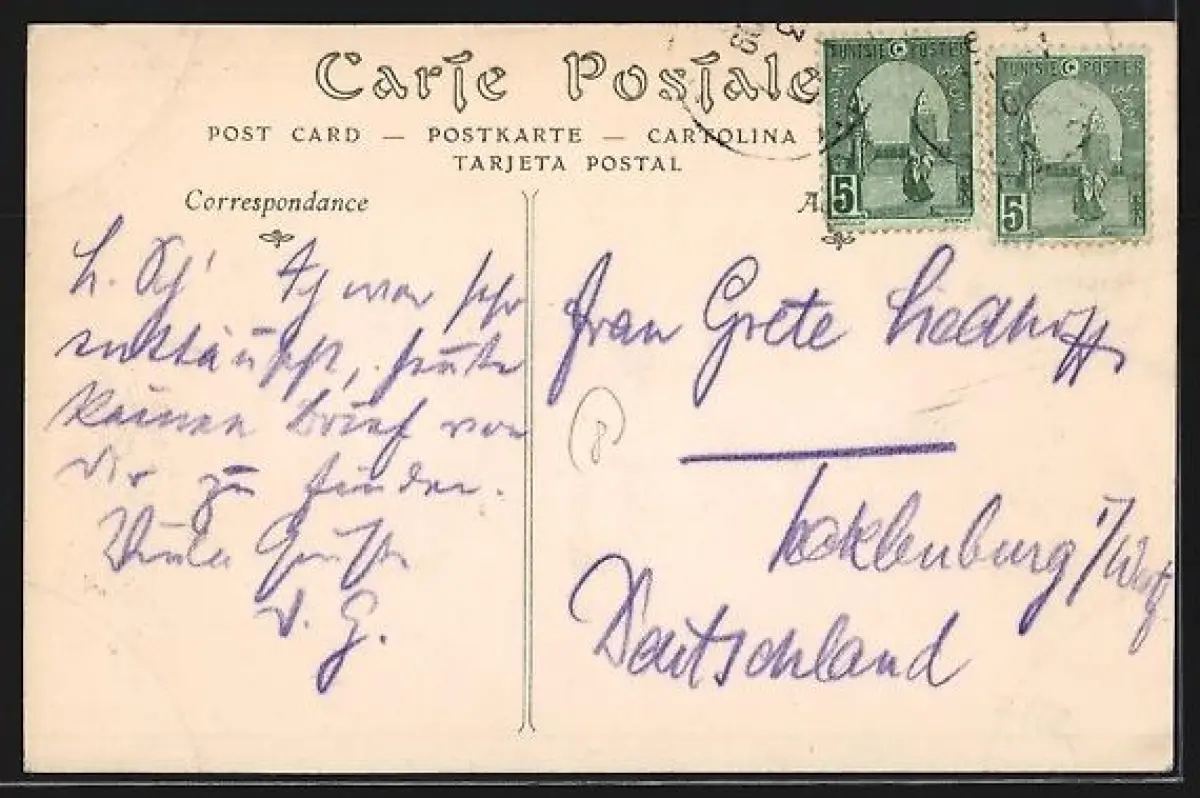 Carte Postale
POST CARD — POSTKARTE — CARTOLINA
TARJETA POSTAL
Correspondance
TUNISIE POSTES
5
TUNISIE POSTES
5
L. Ich war sehr
enttäuscht, heute
keinen Brief von
dir zu finden.
Viele Grüße
D. G.
Frau Grete Liedhoff
8
Tecklenburg i/Westf
Deutschland